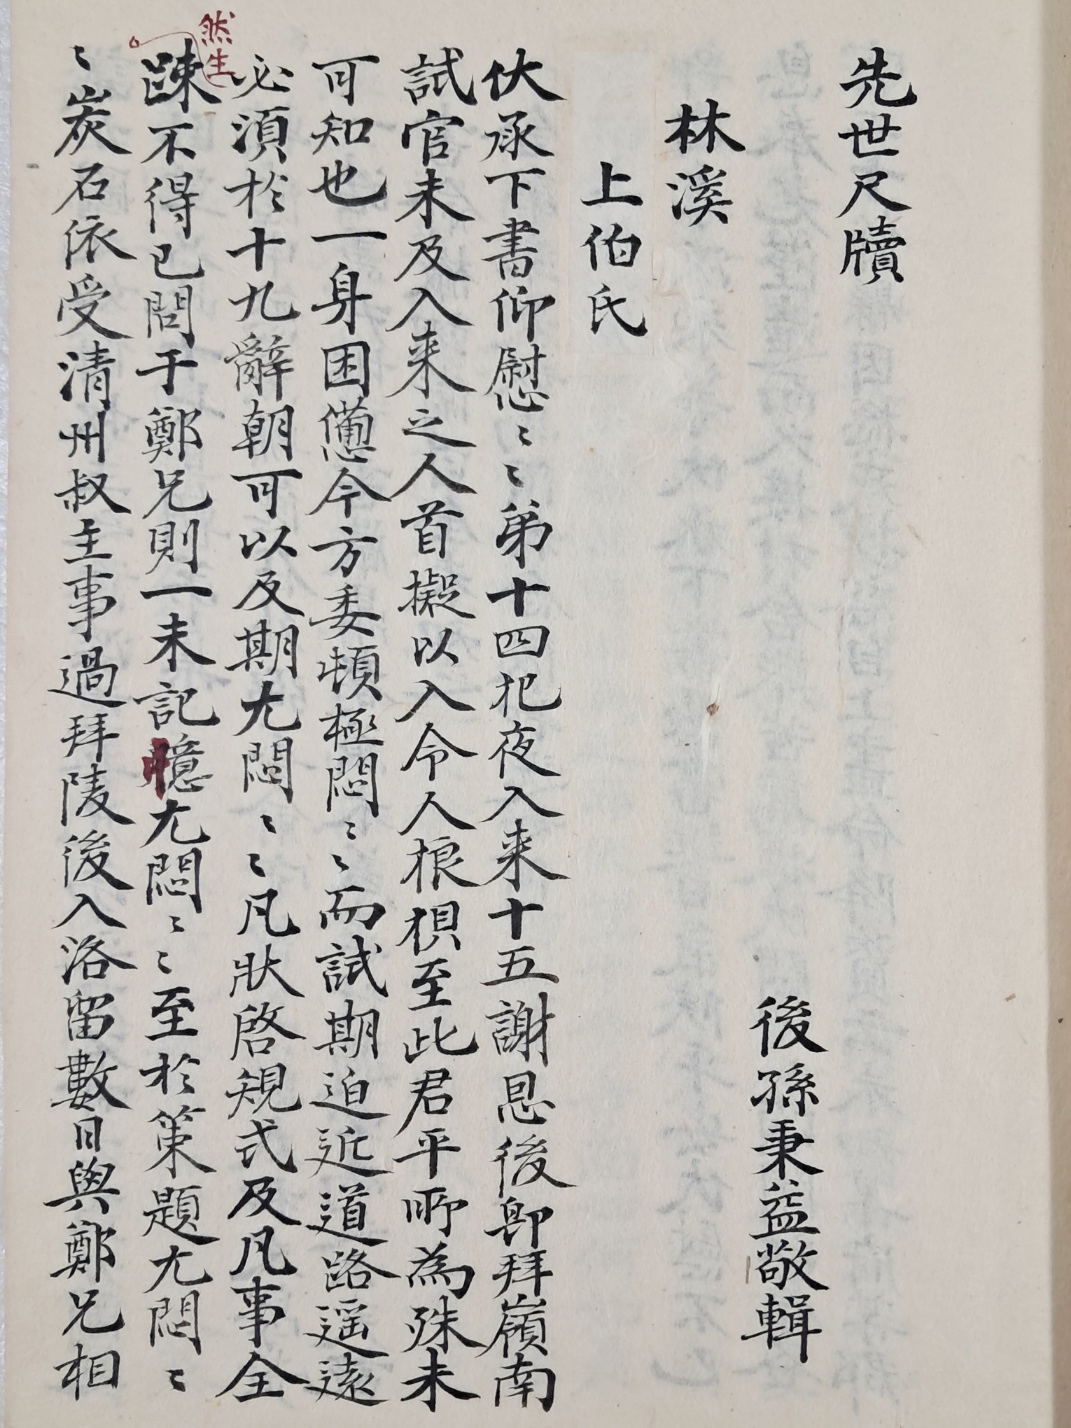 先世尺牘
後孫秉益敬輯
林溪
上伯氏
伏承下書仰慰〻〻弟十四犯夜入来十五謝恩後卽拜嶺南
試官未及入来之人首擬以入令人恨梖至此君平所為殊未
可知也一身困憊今方委頓極悶〻〻而試期迫近道路遥遠
必湏於十九辭朝可以及期尤悶〻〻凡狀啓規式及凡事全
然生
踈不得已問于鄭兄則一未記憶尤悶〻〻至於策題尤悶〻
〻炭石依受清州叔主事過拜陵後入洛留數日與鄭兄相